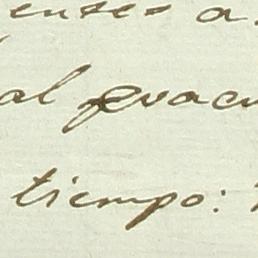 enses a
al evacu
tiempo: